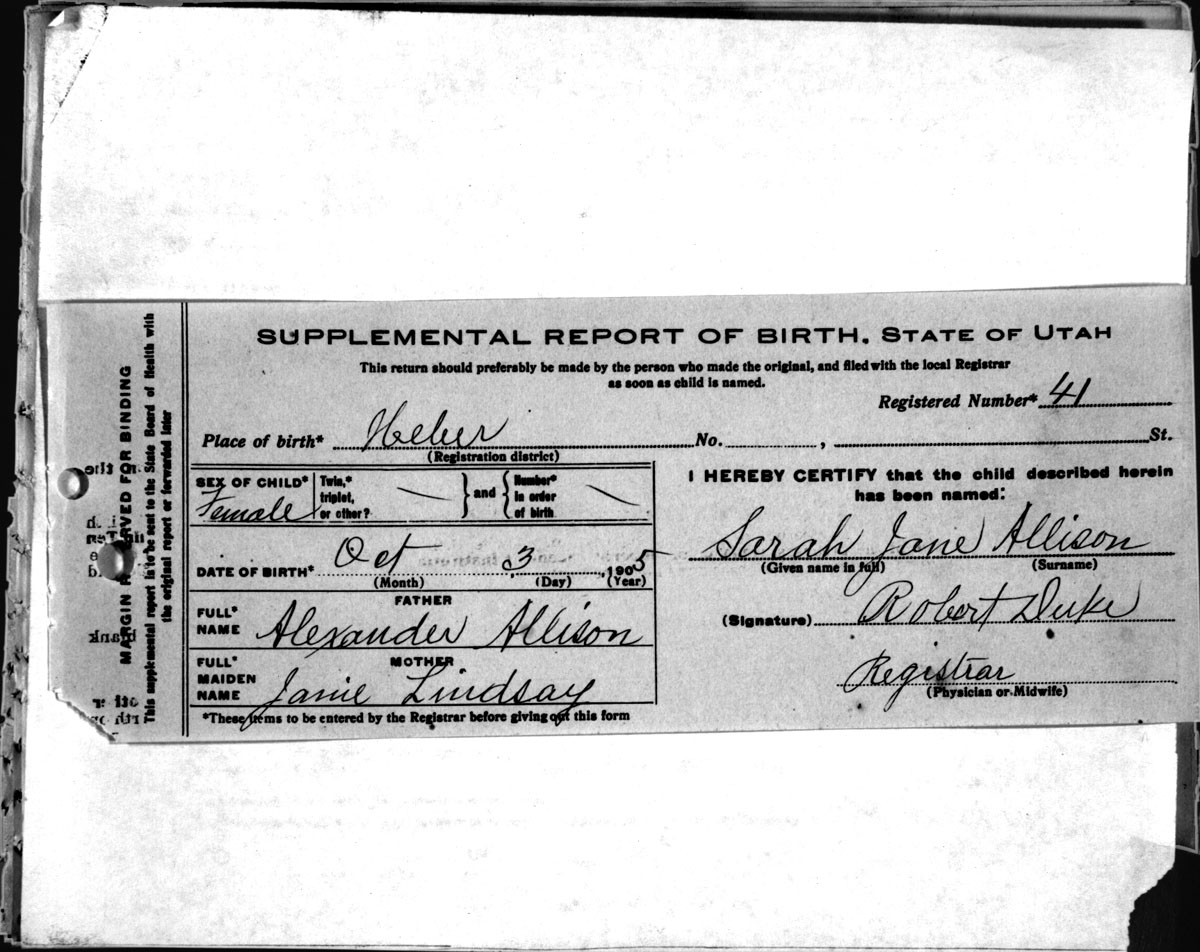 SUPPLEMENTAL REPORT OF BIRTH. STATE OF UTAH
This return should preferably be made by the person who made the original, and filed with the local Registrar
as soon as child is named.
Registered Number* 41
Place of birth* Heber No. , St.
(Registration district)
SEX OF CHILD* Female
Twin,* triplet, or other? — } and { Number* in order of birth —
DATE OF BIRTH* Oct 3 , 1905
(Month) (Day) (Year)
FATHER
FULL* NAME Alexander Allison
MOTHER
FULL* MAIDEN NAME Janie Lindsay
*These items to be entered by the Registrar before giving out this form
I HEREBY CERTIFY that the child described herein
has been named:
Sarah Jane Allison
(Given name in full) (Surname)
(Signature) Robert Duke
Registrar
(Physician or Midwife)
MARGIN RESERVED FOR BINDING
This supplemental report is to be sent to the State Board of Health with
the original report or forwarded later